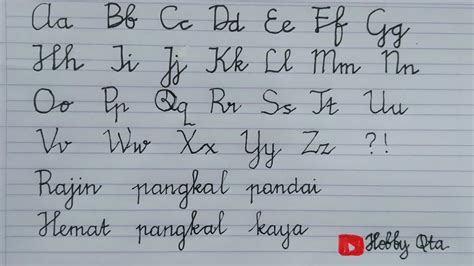 Aa Bb Cc Dd Ee Ff Gg
Hh Ii Jj Kk Ll Mm Nn
Oo Pp Qq Rr Ss Tt Uu
Vv Ww Xx Yy Zz ?!
Rajin pangkal pandai
Hemat pangkal kaya
Hobby Qta